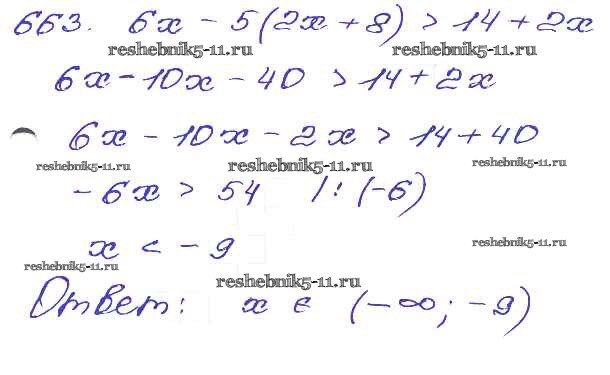 663. 6x - 5(2x + 8) > 14 + 2x
reshebnik5-11.ru reshebnik5-11.ru
6x - 10x - 40 > 14 + 2x
6x - 10x - 2x > 14 + 40
reshebnik5-11.ru reshebnik5-11.ru reshebnik5-11.ru
- 6x > 54 /: (-6)
x < - 9
reshebnik5-11.ru reshebnik5-11.ru
reshebnik5-11.ru
Ответ: x ∈ (-∞; -9)